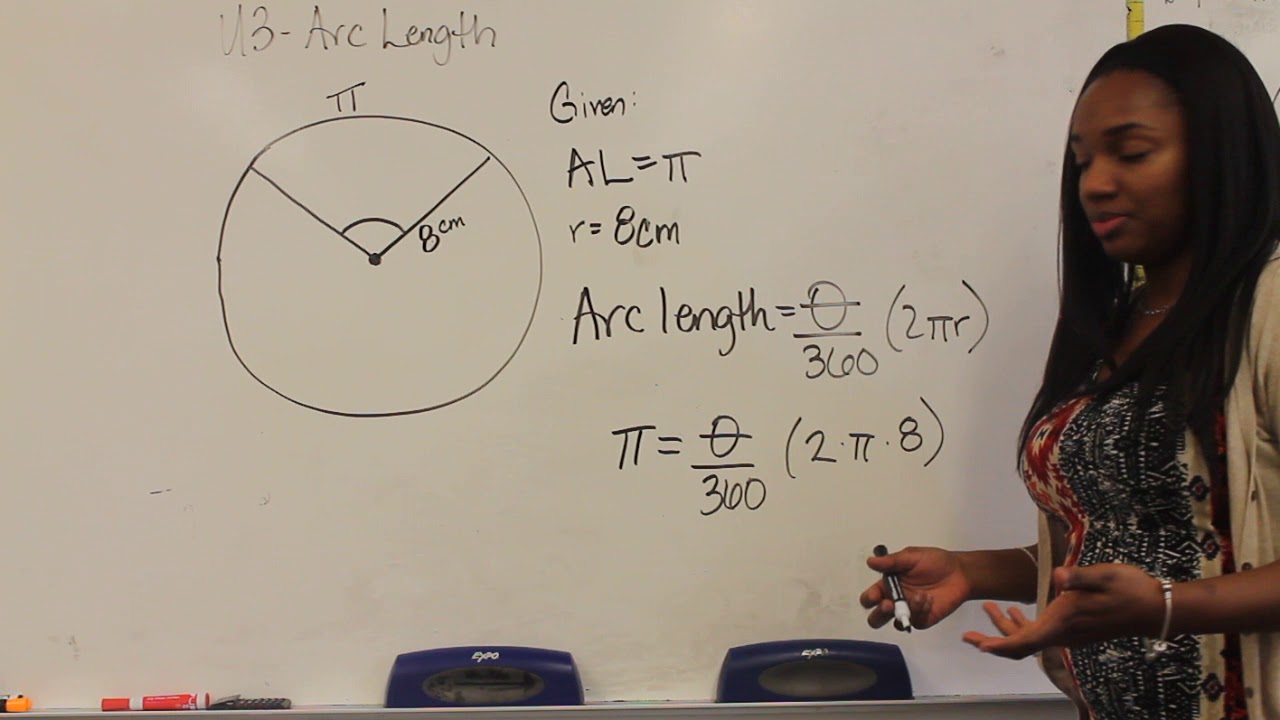 U3- Arc Length
π
8cm
Given:
AL=π
r=8cm
Arc length=θ/360 (2πr)
π=θ/360 (2·π·8)
EXPO
EXPO